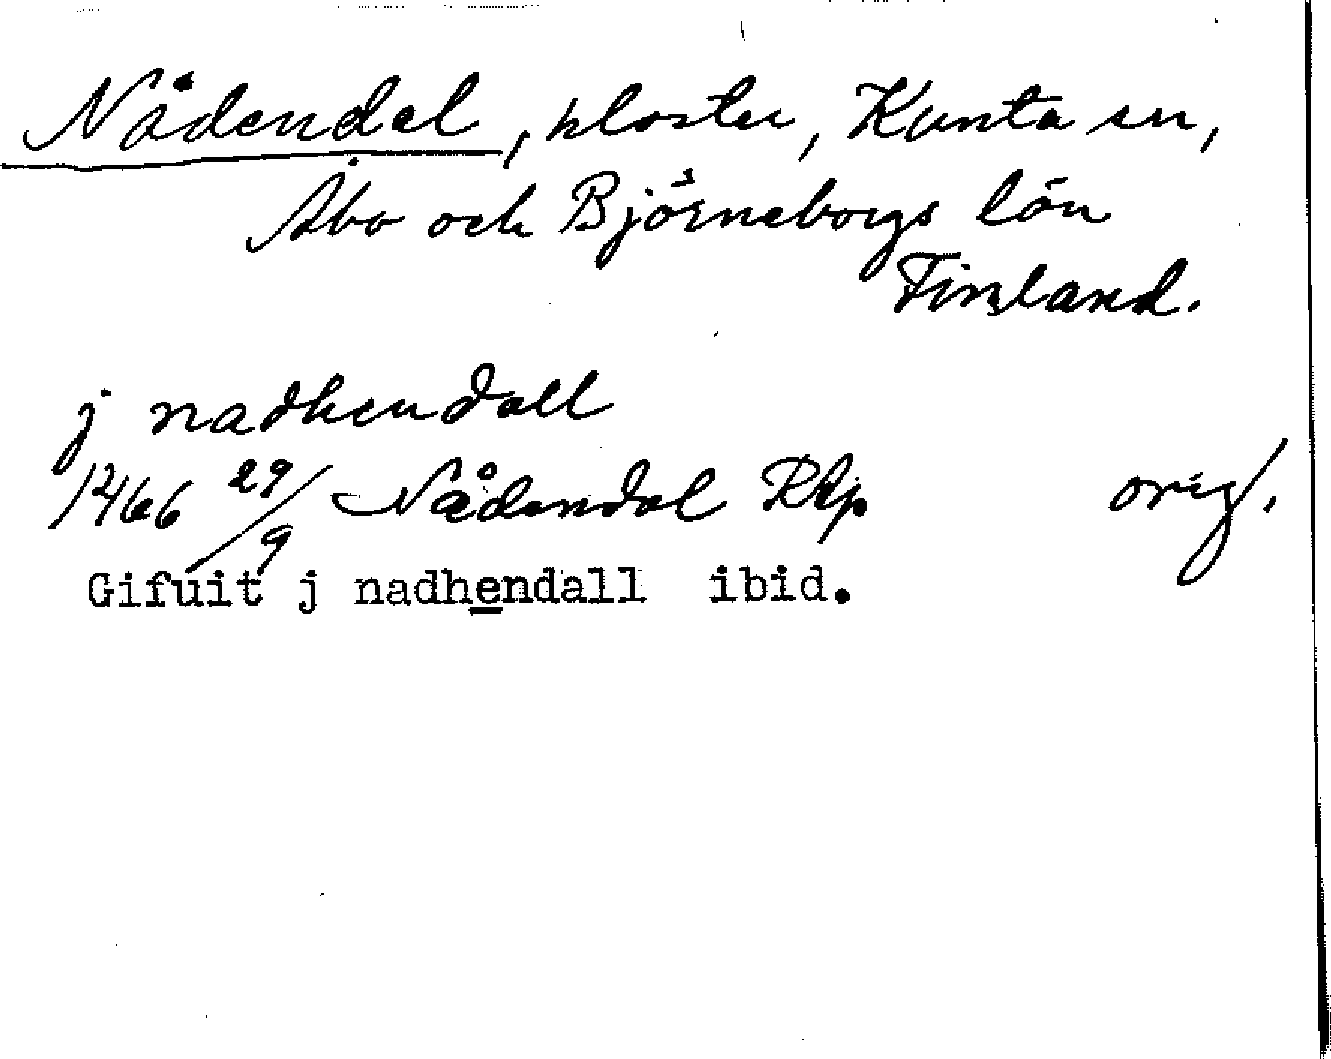 Nådendal, kloster, Kunta sn,
Åbo och Björneborgs län
Finland.
j nadhendall
1466 29/9 Nådendal Rkp orig.
Gifuit j nadhendall ibid.